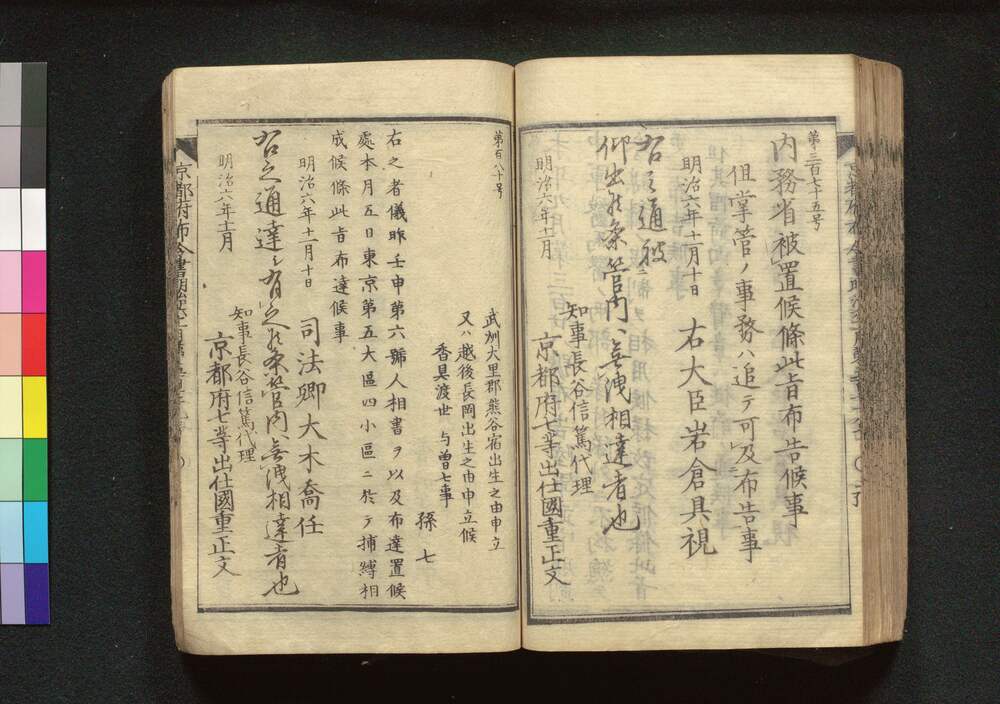 第三百七十五号
内務省被置候條此旨布告候事
但掌管ノ事務ハ追テ可及布告事
明治六年十一月十日
右大臣岩倉具視
右之通被
仰出候条管内ヘ無洩相達者也
明治六年十一月
知事長谷信篤代理
京都府七等出仕國重正文
第百八十号
武州大里郡熊谷宿出生之由申立
又ハ越後長岡出生之由申立候
香具渡世 与曽七事
孫七
右之者儀昨壬申第六號人相書ヲ以及布達置候
處本月五日東京第五大區四小區ニ於テ捕縛相
成候條此旨布達候事
明治六年十一月十日
司法卿大木喬任
右之通達ニ有之候条管内ヘ無洩相達者也
明治六年十一月
知事長谷信篤代理
京都府七等出仕國重正文
京都府布令書